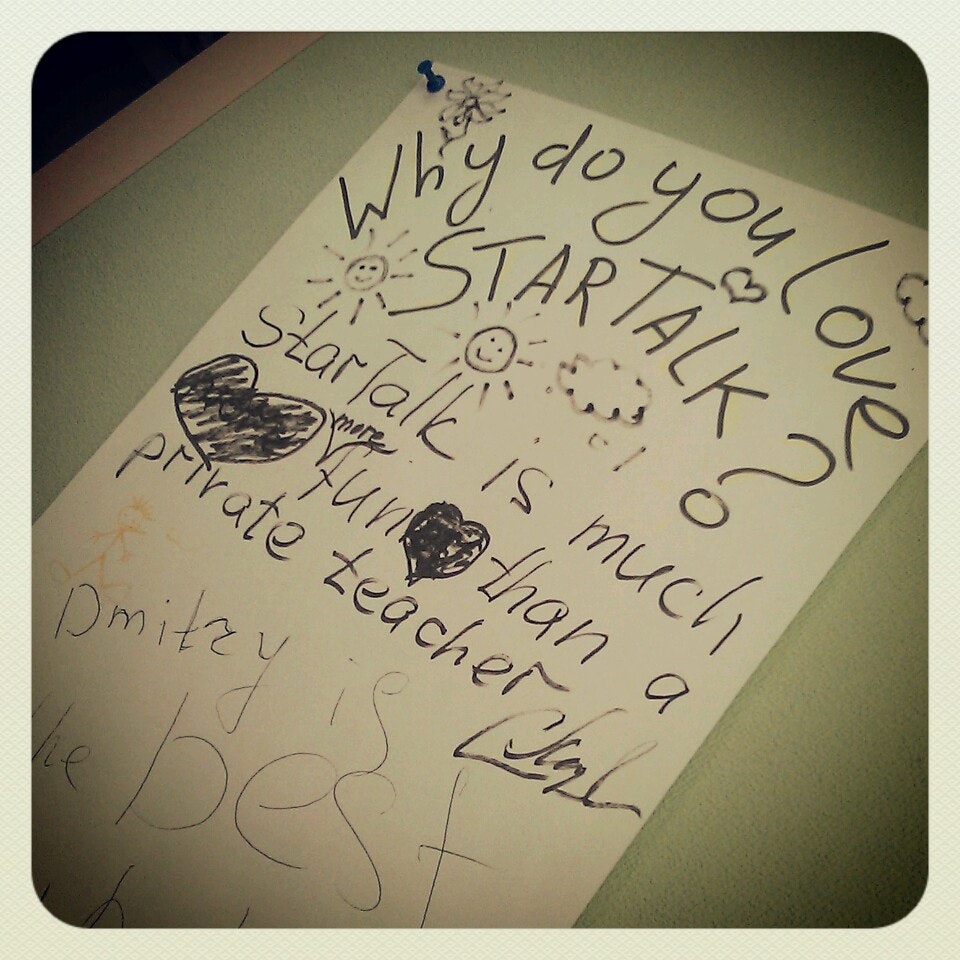 Why do you love
STARTALK?
StarTalk is much
more
fun than a
private teacher
Dmitry is
the best